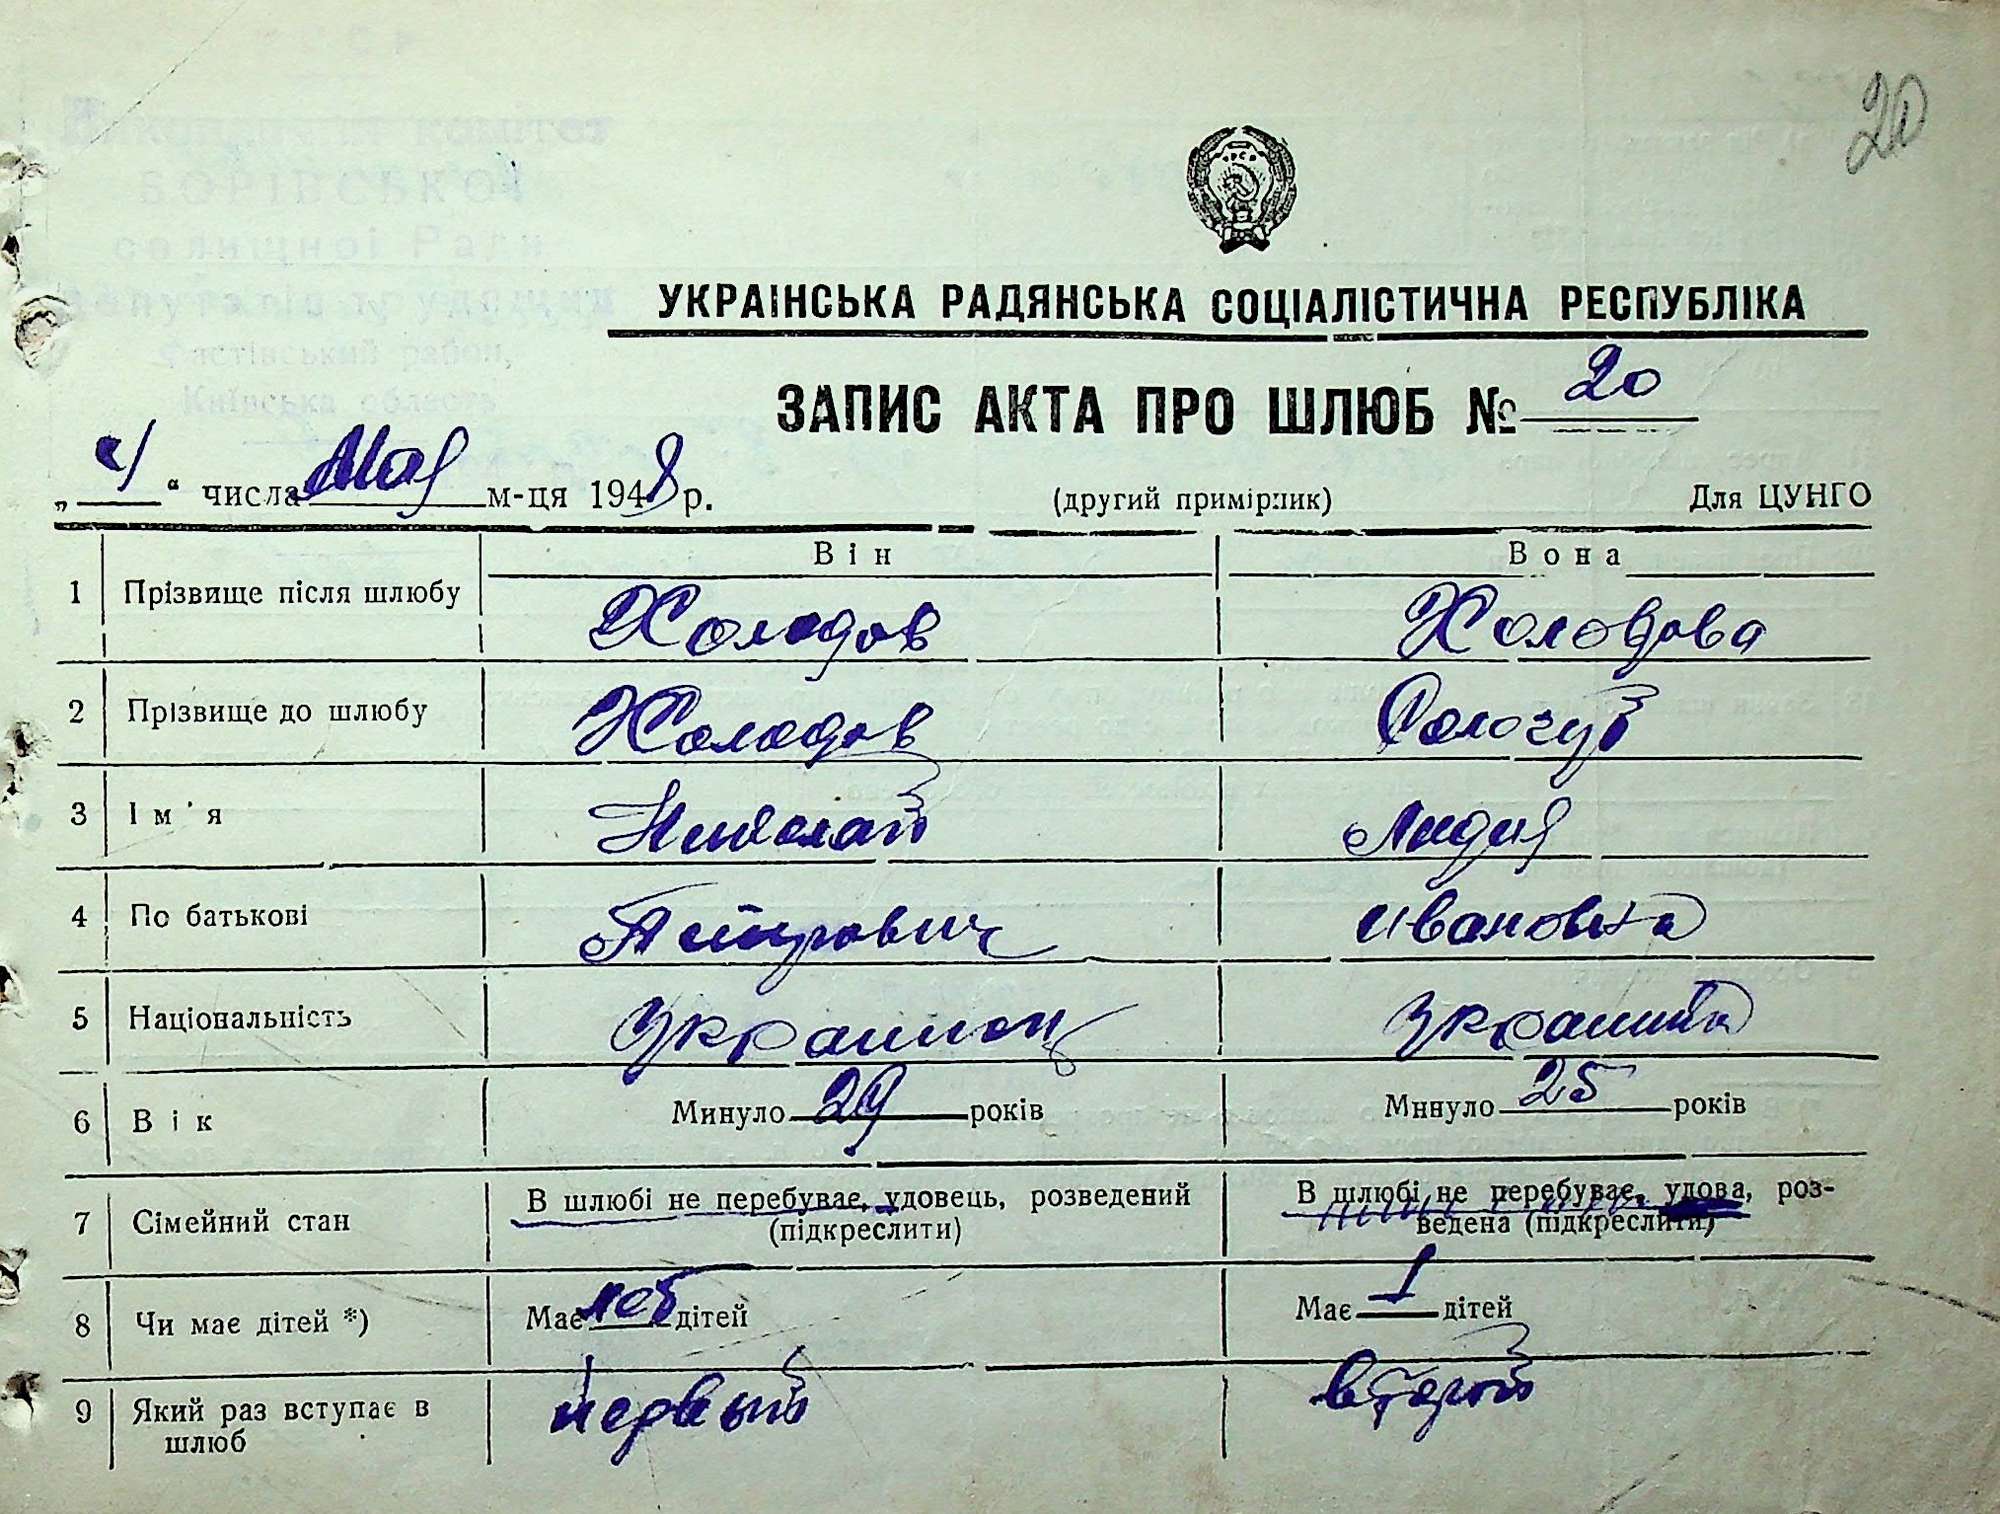 20
УКРАІНСЬКА РАДЯНСЬКА СОЦІАЛІСТИЧНА РЕСПУБЛІКА
ЗАПИС АКТА ПРО ШЛЮБ № 20
„4“ числа мая м-ця 1948 р. (другий примірник) Для ЦУНГО
Він Вона
1 Прізвище після шлюбу Холодов Холодова
2 Прізвище до шлюбу Холодов Сологуб
3 Ім'я Николай Лидия
4 По батькові Петрович Ивановна
5 Національність Украинец Украинка
6 Вік Минуло 29 років Минуло 25 років
7 Сімейний стан В шлюбі не перебуває, удовець, розведений (підкреслити) В шлюбі не перебуває, удова, роз-
ведена (підкреслити)
8 Чи має дітей *) Має дітей Має 1 дітей
9 Який раз вступає в шлюб первый второй
Виконавчий комітет
БОРІВСЬКОІ
селищної Ради
депутатів трудящих
Фастівський район,
Київська область